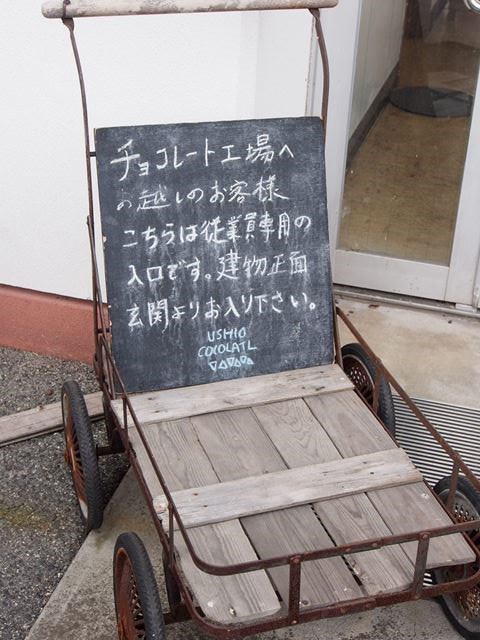 チョコレート工場へ
の越しのお客様
こちらは従業員専用の
入口です。建物正面
玄関よりお入り下さい。
USHIO
COCOLATL